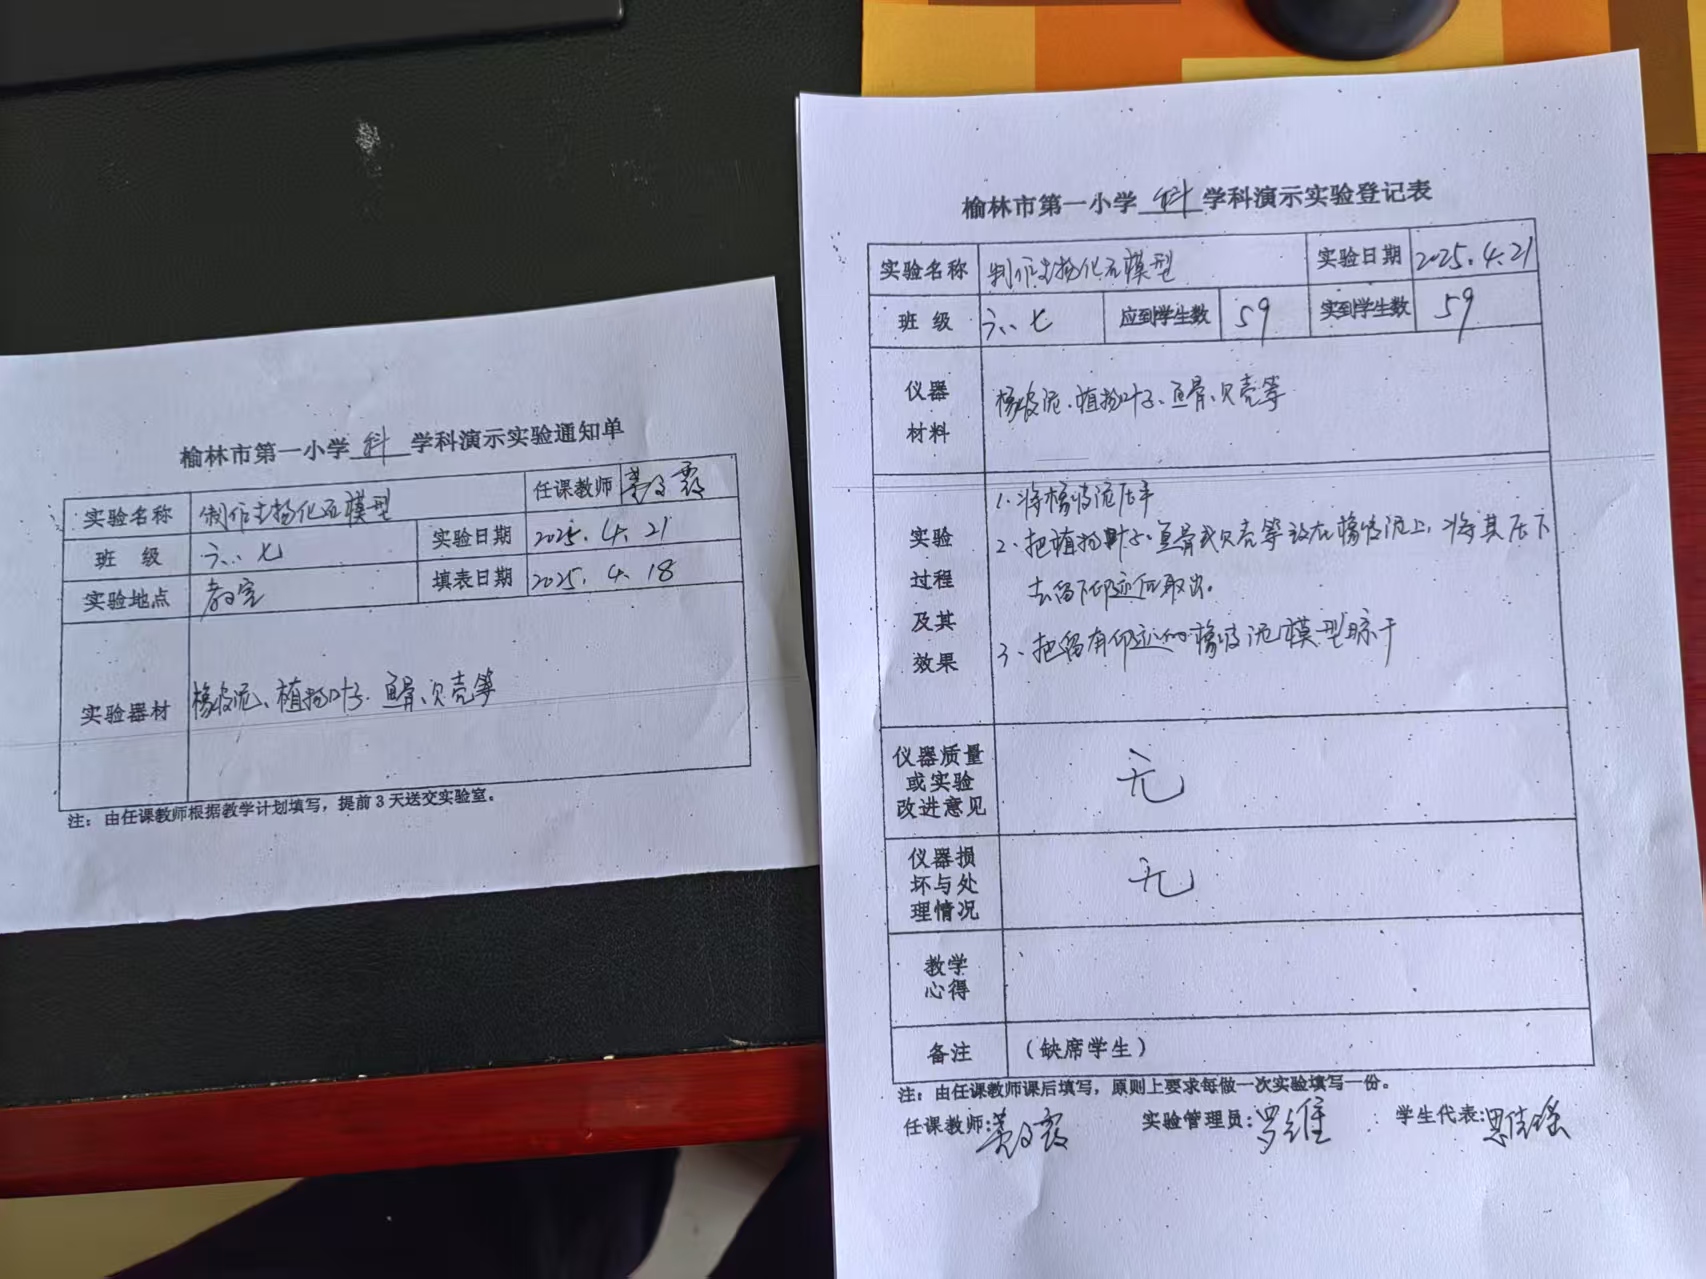 榆林市第一小学 科 学科演示实验通知单
实验名称 制作生物化石模型 任课教师
班 级 六.七 实验日期 2025.4.21
实验地点 教室 填表日期 2025.4.18
实验器材 橡皮泥、植物叶子、鱼骨、贝壳等
注：由任课教师根据教学计划填写，提前3天送交实验室。
榆林市第一小学 科 学科演示实验登记表
实验名称 制作生物化石模型 实验日期 2025.4.21
班 级 六.七 应到学生数 59 实到学生数 59
仪器
材料
橡皮泥、植物叶子、鱼骨、贝壳等
实验
过程
及其
效果
1、将橡皮泥压平
2、把植物叶子、鱼骨或贝壳等放在橡皮泥上,将其压下
去留下印迹后取出。
3、把留有印迹的橡皮泥模型晾干
仪器质量
或实验
改进意见
无
仪器损
坏与处
理情况
无
教学
心得
备注 （缺席学生）
注：由任课教师课后填写，原则上要求每做一次实验填写一份。
任课教师: 实验管理员:罗维 学生代表: